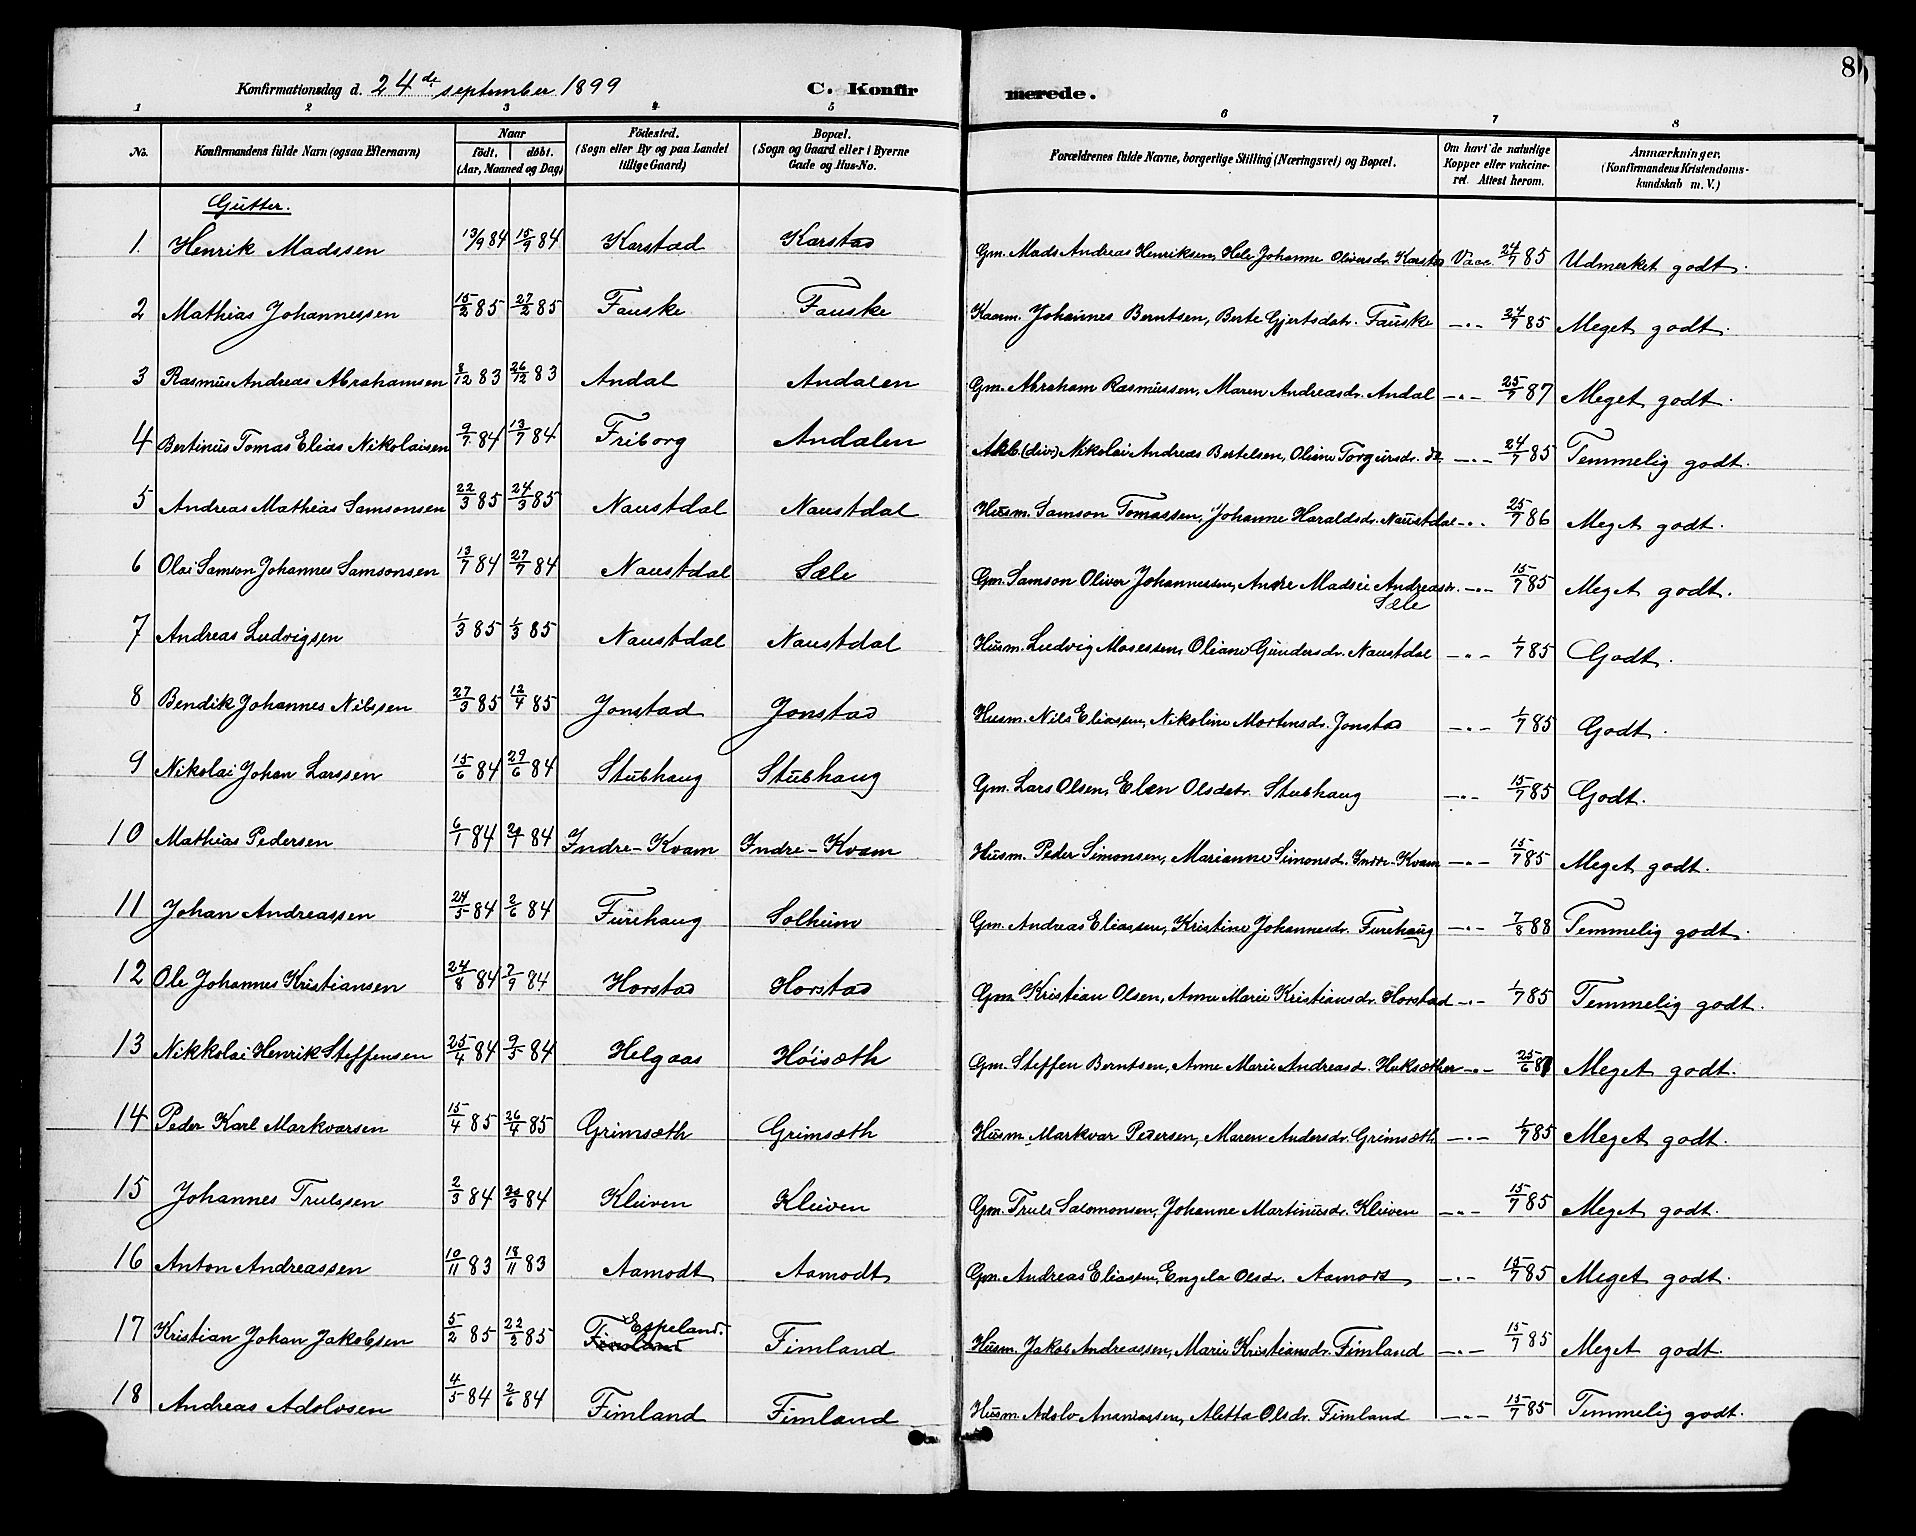 8
Konfirmationsdag d. 24de september 1899 C. Konfirmerede.
1 2 3 4 5 6 7 8
No. Konfirmandens fulde Navn (ogsaa Efternavn) Naar födt. döbt. (Aar, Maaned og Dag) Födested. (Sogn eller By og paa Landet tillige Gaard) Bopæl. (Sogn og Gaard eller i Byerne Gade og Hus-No. Forældrenes fulde Navne, borgerlige Stilling (Næringsvei) og Bopæl. Om havt de naturlige Kopper eller vakcineret. Attest herom. Anmærkninger. (Konfirmandens Kristendomskundskab m. V.)
Gutter.
1. Henrik Madssen 13/9 84 15/9 84 Karstad Karstad Gm. Mads Andreas Henriksen, Hele Johanne Oliversdr. Karstad Vacc. 24/7 85 Udmerket godt.
2 Mathias Johannessen 15/2 85 27/2 85 Fauske Fauske Kaarm. Johannes Berntsen, Berte Gjertsdatr. Fauske -"- 24/7 85 Meget godt.
3 Rasmus Andreas Abrahamsen 8/12 83 26/12 83 Andal Andalen Gm. Abraham Rasmussen, Maren Andreasdr. Andal -"- 25/7 87 Meget godt.
4 Bertinus Tomas Elias Nikolaisen 9/7 84 13/7 84 Friborg Andalen Arb. Nikolai Andreas Bertelsen, Oliane Torgersdr. -"- 24/7 85 Temmelig godt.
5 Andreas Mathias Samsonsen 22/3 85 24/3 85 Naustdal Naustdal Husm. Samson Tomassen, Johanne Haraldsdr. Naustdal -"- 25/7 86 Meget godt.
6 Olai Samson Johannes Samsonsen 13/7 84 27/7 84 Naustdal Sæle Gm. Samson Oliver Johannessen, Andre Madsie Andreasdr. Sæle -"- 15/7 85 Meget godt.
7 Andreas Ludvigsen 1/3 85 1/3 85 Naustdal Naustdal Husm. Ludvig Mosessen, Oliane Gundersdr. Naustdal -"- 1/7 85 Godt.
8 Bendik Johannes Nilssen 27/3 85 12/4 85 Jonstad Jonstad Husm. Nils Eliassen, Nikoline Mortensdr. Jonstad -"- 1/7 85 Godt.
9 Nikolai Johan Larssen 15/6 84 29/6 84 Stubhaug Stubhaug Gm. Lars Olsen, Elen Olsdatr. Stubhaug -"- 15/7 85 Godt.
10 Mathias Pedersen 6/1 84 84 Indre-Kvam Indre-Kvam Husm. Peder Simonsen, Marianne Simonsd. Indre-Kvam -"- 15/7 85 Meget godt.
11 Johan Andreassen 24/5 84 2/6 84 Furehaug Solheim Gm. Andreas Eliassen, Kristine Johannesdr. Furehaug -"- 7/8 88 Temmelig godt.
12 Ole Johannes Kristiansen 24/8 84 7/9 84 Horstad Horstad Gm. Kristian Olsen, Anne Marie Kristiansdr. Horstad -"- 1/7 85 Temmelig godt.
13 Nikkolai Henrik Steffensen 25/4 84 9/5 84 Helgaas Höisæth Gm. Steffen Berntsen, Anne Marie Andreasd. Huksæther -"- 25/6 Meget godt.
14 Peder Karl Markvarsen 15/4 85 26/4 85 Grimsæth Grimsæth Husm. Markvar Pedersen, Maren Andersdr. Grimsæth. -"- 1/7 85 Meget godt.
15 Johannes Trulssen 2/3 84 84 Kleiven Kleiven Gm. Truls Salomonsen, Johanne Martinusdr. Kleiven -"- 15/7 85 Meget godt.
16 Anton Andreassen 10/11 83 18/11 83 Aamodt Aamodt Gm. Andreas Eliassen, Engela Olsdr. Aamodt -"- 15/7 85 Meget godt.
17 Kristian Johan Jakobsen 5/2 85 22/2 85 Espeland. Fimland Fimland Husm. Jakob Andreassen, Marie Kristiansdr. Fimland -"- 15/7 85 Meget godt.
18 Andreas Adolvsen 4/5 84 2/6 84 Fimland Fimland Husm. Adolv Ananiassen, Aletta Olsdr. Fimland -"- 15/7 85 Temmelig godt.